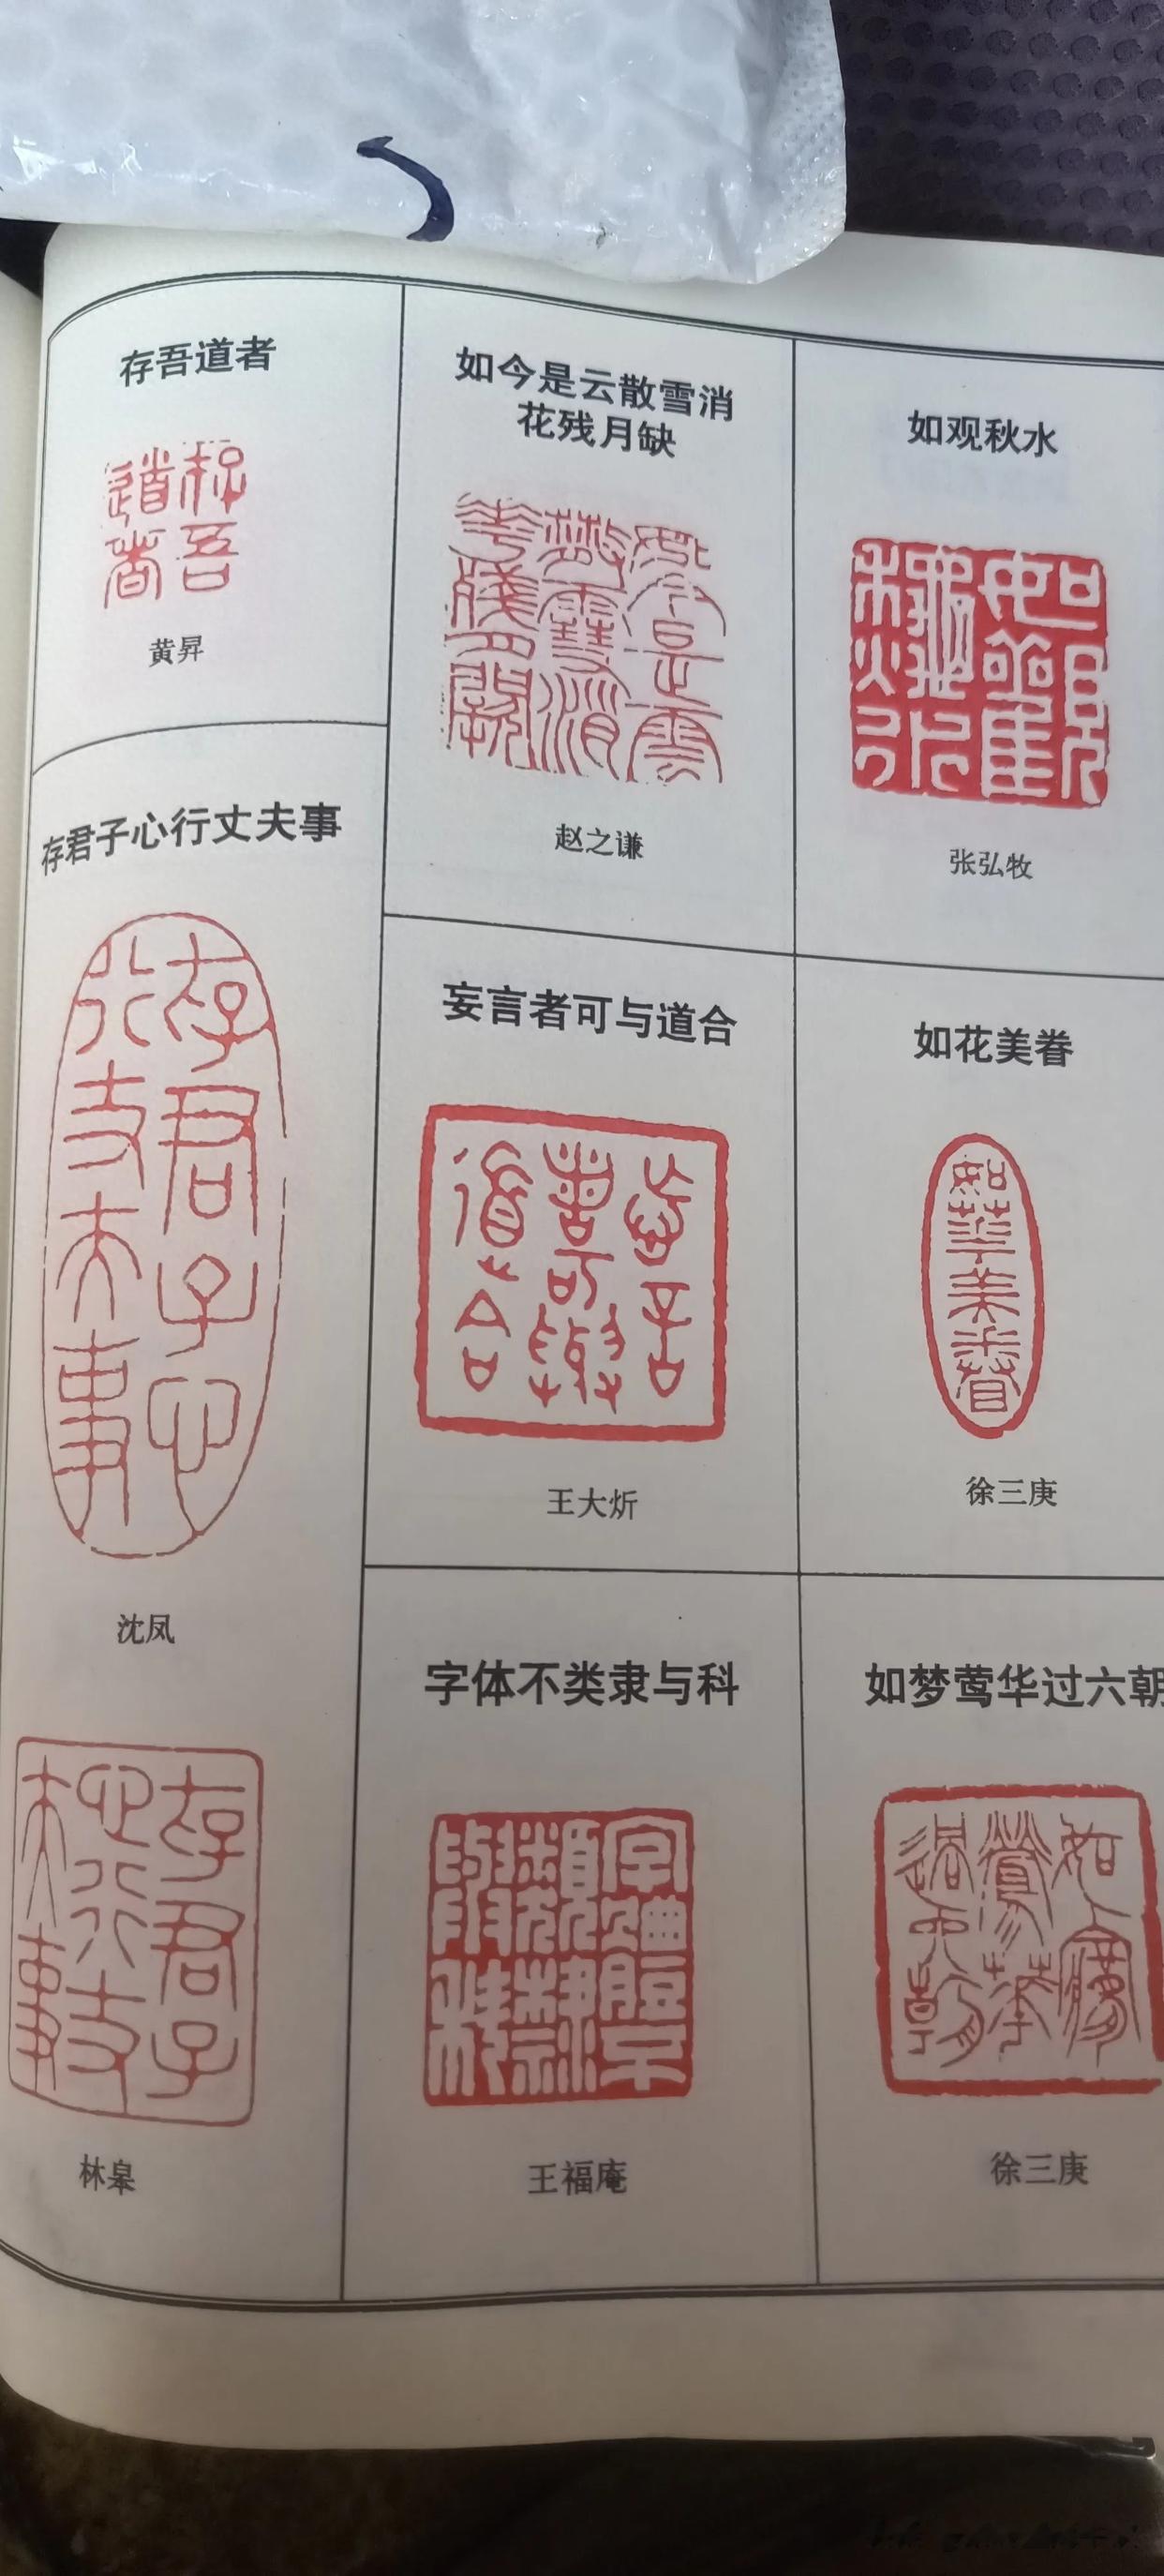 存吾道者
黄昇
存君子心行丈夫事
沈凤
林皋
如今是云散雪消
花残月缺
赵之谦
妄言者可与道合
王大炘
字体不类隶与科
王福庵
如观秋水
张弘牧
如花美眷
徐三庚
如梦莺华过六朝
徐三庚